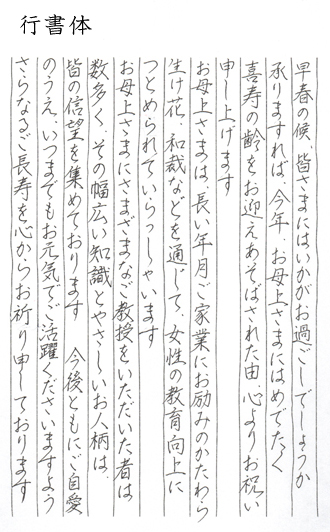 行書体
早春の候、皆さまにはいかがお過ごしでしょうか
承りますれば、今年、お母上さまにはめでたく
喜寿の齢をお迎えあそばされた由、心よりお祝い
申し上げます
お母上さまは、長い年月、ご家業にお励みのかたわら
生け花、和裁などを通じて、女性の教育向上に
つとめられていらっしゃいます
お母上さまにさまざまなご教授をいただいた者は
数多く、その幅広い知識とやさしいお人柄は、
皆の信望を集めております　今後ともにご自愛
のうえ、いつまでもお元気でご活躍くださいますよう
さらなるご長寿を心からお祈り申しております